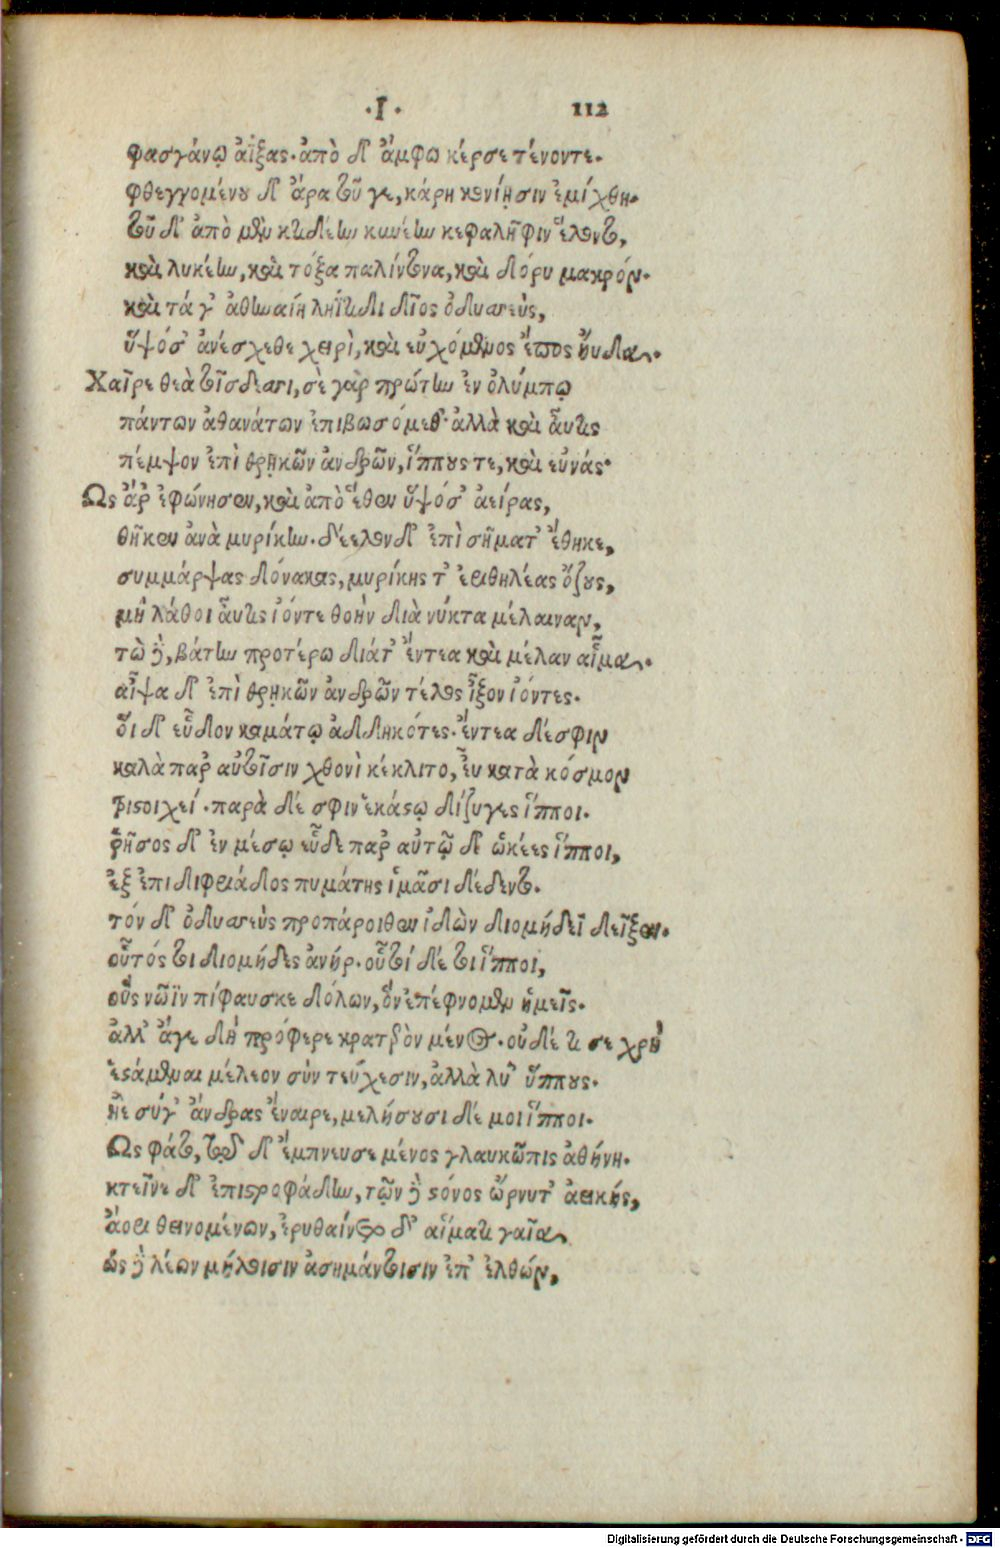 ·Ι· 112
φασγάνῳ ἀΐξας· ἀπὸ δ' ἄμφω κέρσε τένοντε.
φθεγγομένου δ' ἄρα τοῦ γε, κάρη κονίῃσιν ἐμίχθη.
τοῦ δ' ἀπὸ μὲν κτιδέην κυνέην κεφαλῆφιν ἕλοντο,
καὶ λυκέην, καὶ τόξα παλίντονα, καὶ δόρυ μακρόν.
καὶ τά γ' ἀθηναίη ληΐτιδι δῖος ὀδυσσεὺς,
ὑψόσ' ἀνέσχεθε χειρὶ, καὶ εὐχόμενος ἔπος ηὔδα.
Χαῖρε θεὰ τοῖσδεσσι, σὲ γὰρ πρώτην ἐν ὀλύμπῳ
πάντων ἀθανάτων ἐπιβωσόμεθ' ἀλλὰ καὶ αὖτις
πέμψον ἐπὶ θρῃκῶν ἀνδρῶν, ἵππους τε, καὶ εὐνάς·
Ὣς ἄρ' ἐφώνησεν, καὶ ἀπὸ ἕθεν ὑψόσ' ἀείρας,
θῆκεν ἀνὰ μυρίκην. δέελον δ' ἐπὶ σῆματ' ἔθηκε,
συμμάρψας δόνακας, μυρίκης τ' ἐριθηλέας ὄζους,
μὴ λάθοι αὖτις ἰόντε θοὴν διὰ νύκτα μέλαιναν,
τὼ δὲ, βάτην προτέρω διάτ' ἔντεα καὶ μέλαν αἷμα.
αἶψα δ' ἐπὶ θρῃκῶν ἀνδρῶν τέλος ἷξον ἰόντες.
Οἵ δ' εὗδον καμάτῳ ἀδδηκότες· ἔντεα δέσφιν
καλὰ παρ' αὐτοῖσιν χθονὶ κέκλιτο, εὖ κατὰ κόσμον
τριστοιχεί. παρὰ δέ σφιν ἑκάστῳ δίζυγες ἵπποι.
ῥῆσος δ' ἐν μέσῳ εὗδε παρ' αὐτῷ δ' ὠκέες ἵπποι,
ἐξ ἐπιδιφριάδος πυμάτης ἱμᾶσι δέδεντο.
τόν δ' ὀδυσσεὺς προπάροιθεν ἰδὼν διομήδεϊ δεῖξεν.
οὗτός τοι διομήδες ἀνήρ. οὗτοί δέ τοι ἵπποι,
οὓς νῶϊν πίφαυσκε δόλων, ὃν ἐπέφνομεν ἡμεῖς.
ἀλλ' ἄγε δὴ πρόφερε κρατερὸν μένος. οὐδέ τι σε χρὴ
ἑστάμεναι μέλεον σὺν τεύχεσιν, ἀλλὰ λύ' ἵππους.
ἠὲ σύγ' ἄνδρας ἔναιρε, μελήσουσι δέ μοι ἵπποι.
Ὣς φάτο, τῷ δ' ἔμπνευσε μένος γλαυκῶπις ἀθήνη.
κτεῖνε δ' ἐπιστροφάδην, τῶν δὲ στόνος ὤρνυτ' ἀεικής,
ἄορι θεινομένων, ἐρυθαίνετο δ' αἵματι γαῖα.
ὡς δὲ λέων μήλοισιν ἀσημάντοισιν ἐπ' ἐλθών,
Digitalisierung gefördert durch die Deutsche Forschungsgemeinschaft - DFG